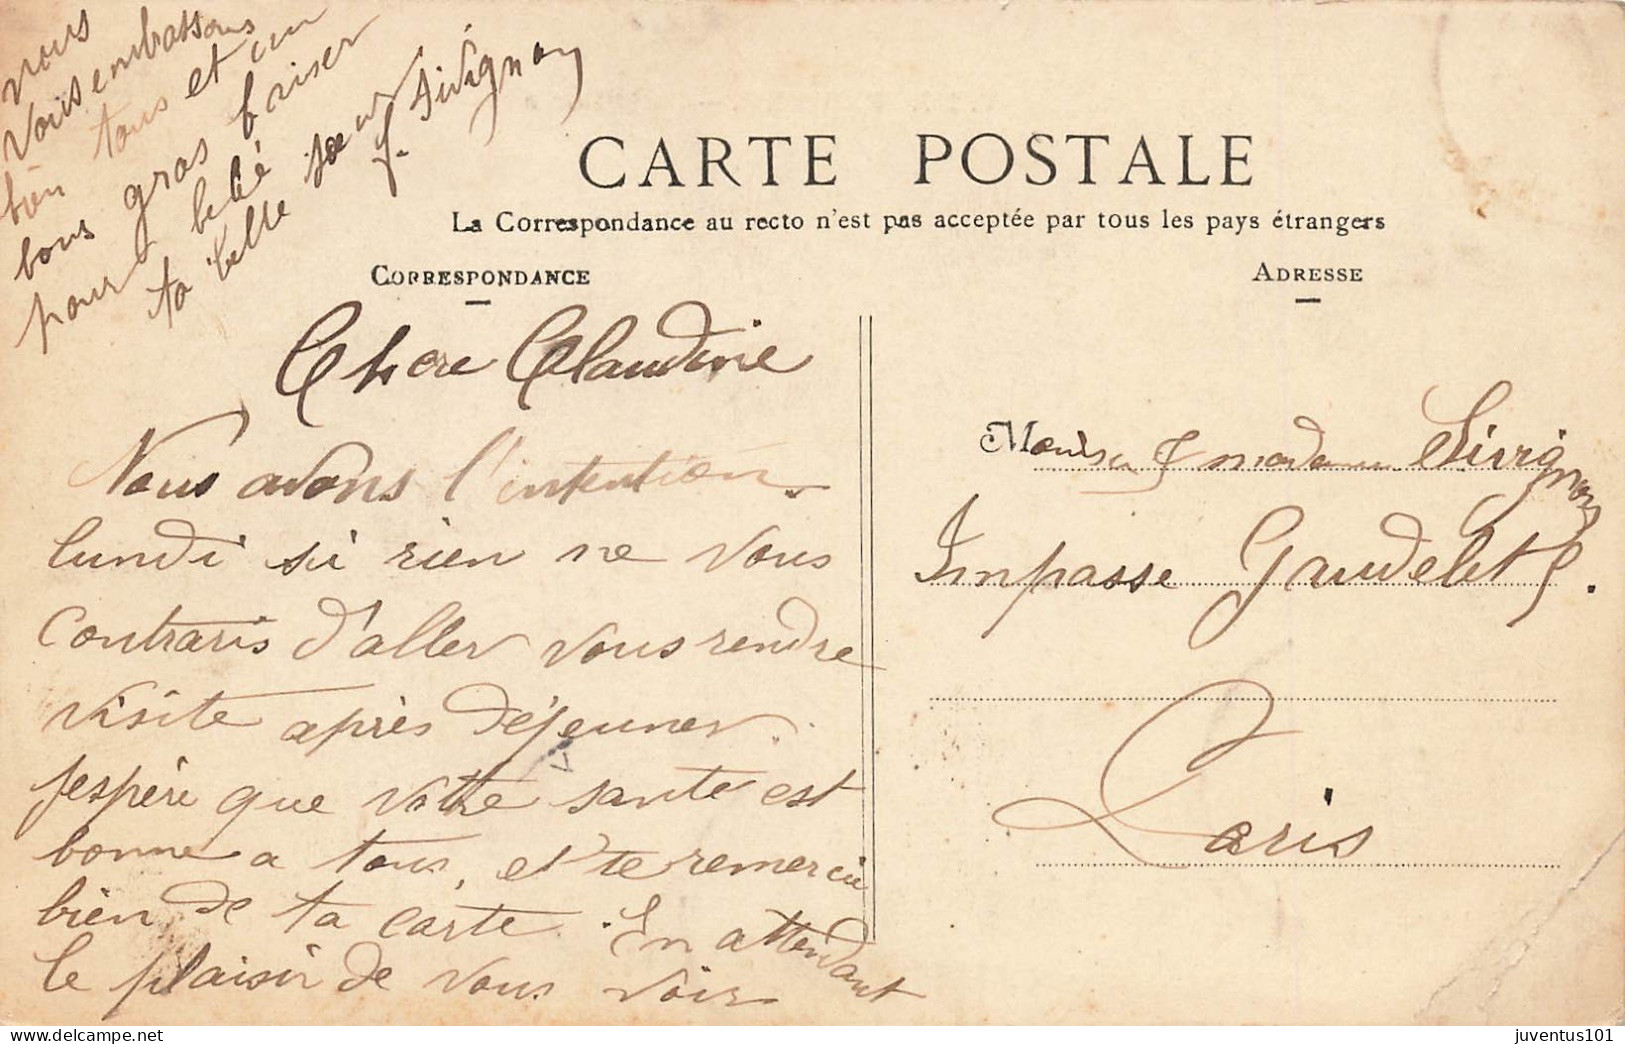 CARTE POSTALE
La Correspondance au recto n'est pas acceptée par tous les pays étrangers
CORRESPONDANCE
ADRESSE
Chere Claudine
Nous avons l'intention
lundi si rien ne vous
contraris d'aller vous rendre
visite après déjeuner.
j'espère que votre santé est
bonne a tous, et te remercie
bien de ta carte. En attendant
le plaisir de vous voir
nous
vous embrassons
bien tous et un
bons gros baiser
pour bebé
ta belle soeur
J. Sivignon
Monsieur & madame Sivignon
Impasse Gaudelet 8.
Paris
juventus101